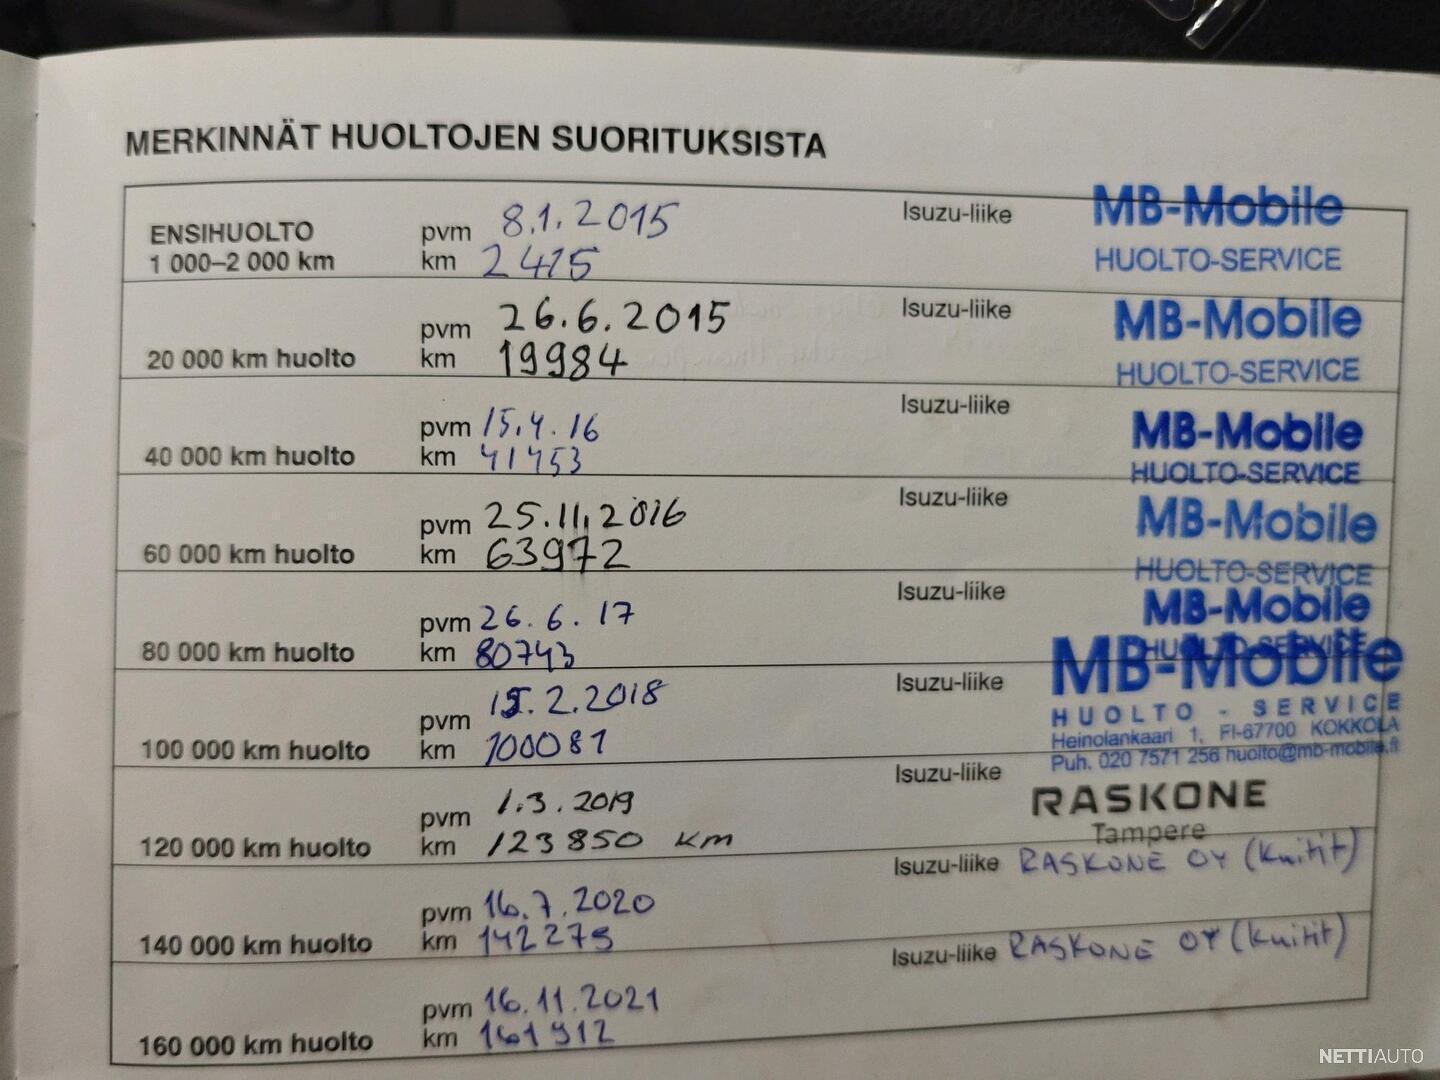 MERKINNÄT HUOLTOJEN SUORITUKSISTA
ENSIHUOLTO
1 000–2 000 km
pvm 8.1.2015
km 2415
Isuzu-liike
MB-Mobile
HUOLTO-SERVICE
20 000 km huolto
pvm 26.6.2015
km 19984
Isuzu-liike
MB-Mobile
HUOLTO-SERVICE
40 000 km huolto
pvm 15.4.16
km 41453
Isuzu-liike
MB-Mobile
HUOLTO-SERVICE
60 000 km huolto
pvm 25.11.2016
km 63972
Isuzu-liike
MB-Mobile
HUOLTO-SERVICE
80 000 km huolto
pvm 26.6.17
km 80743
Isuzu-liike
MB-Mobile
HUOLTO-SERVICE
100 000 km huolto
pvm 15.2.2018
km 100081
Isuzu-liike
MB-Mobile
HUOLTO - SERVICE
Heinolankaari 1, FI-67700 KOKKOLA
Puh. 020 7571 256 huolto@mb-mobile.fi
120 000 km huolto
pvm 1.3.2019
km 123850 km
Isuzu-liike
RASKONE
Tampere
140 000 km huolto
pvm 16.7.2020
km 142275
Isuzu-liike RASKONE OY (kuitit)
160 000 km huolto
pvm 16.11.2021
km 161912
Isuzu-liike RASKONE OY (kuitit)
NETTIAUTO